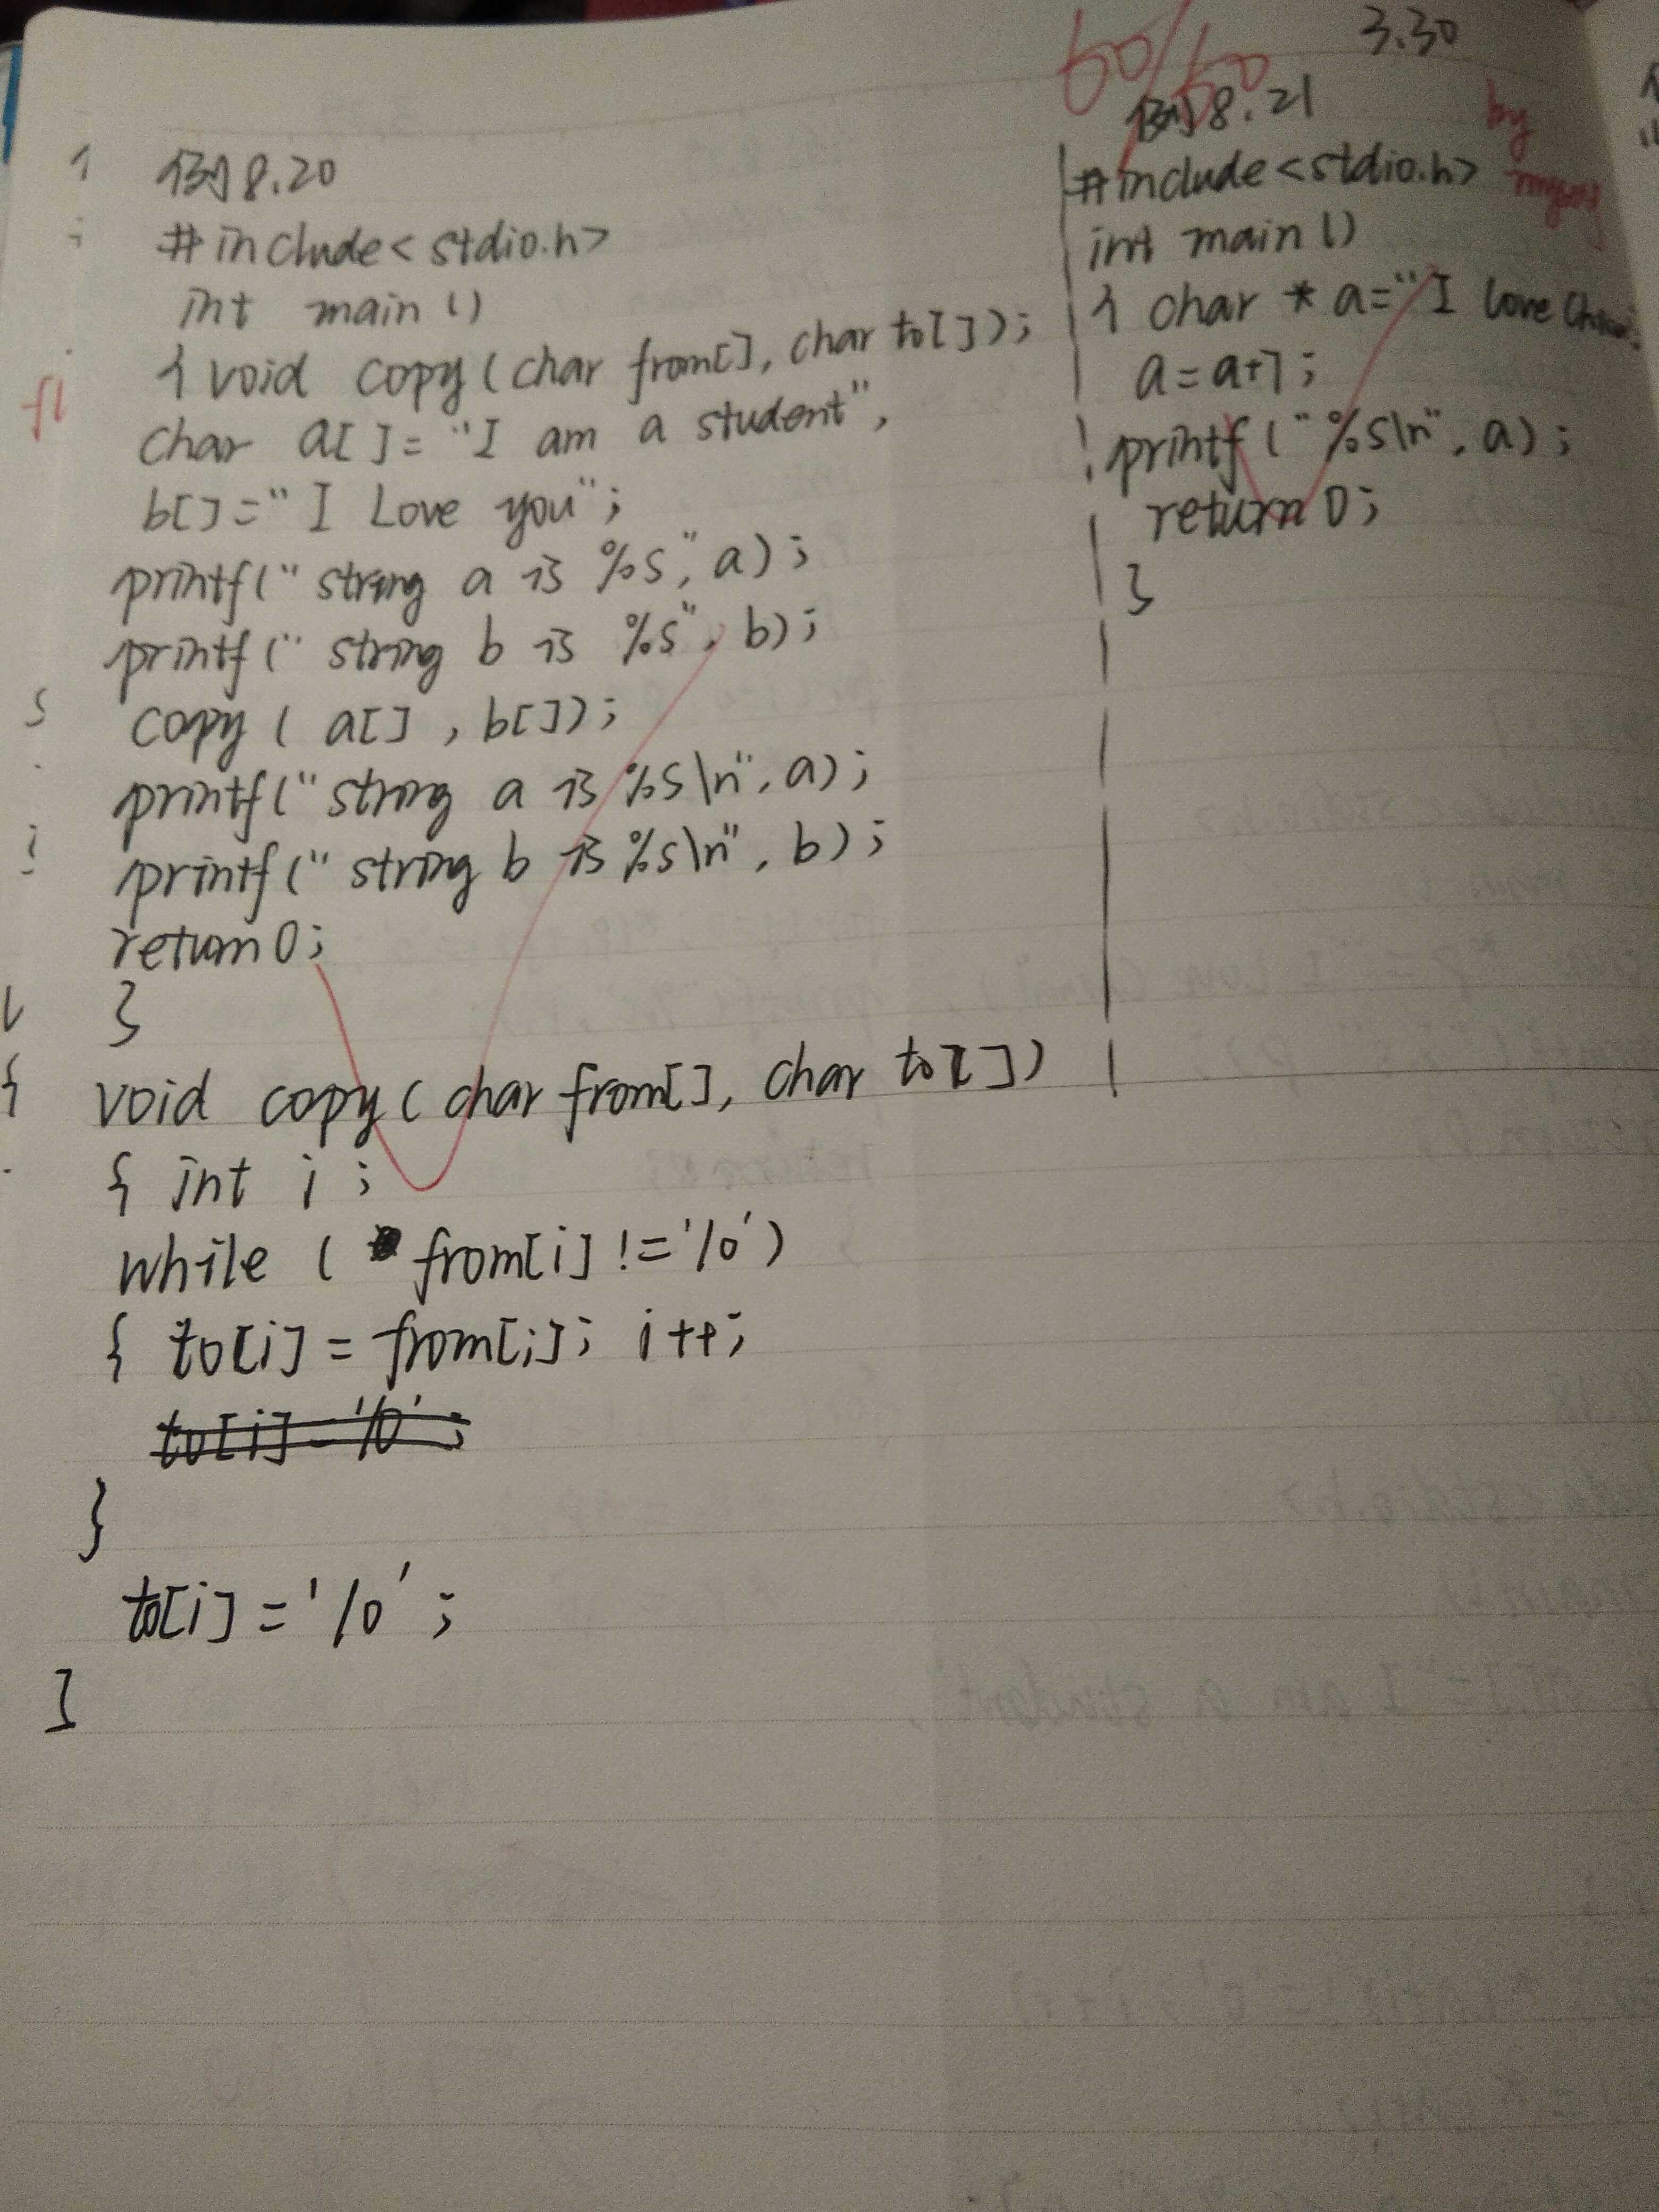 3.30
60/60
例8.20
#include<stdio.h>
int main()
{ void copy(char from[], char to[]);
char a[]="I am a student",
b[]="I Love you";
printf("string a is %s", a);
printf("string b is %s", b);
copy( a[] , b[]);
printf("string a is %s\n", a);
printf("string b is %s\n", b);
return 0;
}
void copy( char from[], char to[])
{ int i ;
while ( from[i] !='/0')
{ to[i] = from[i]; i++;
to[i]='/0';
}
to[i]='/0';
}
例8.21
by
#include<stdio.h>
int main()
{ char * a="I Love China";
a=a+7;
printf("%s\n", a);
return 0;
}